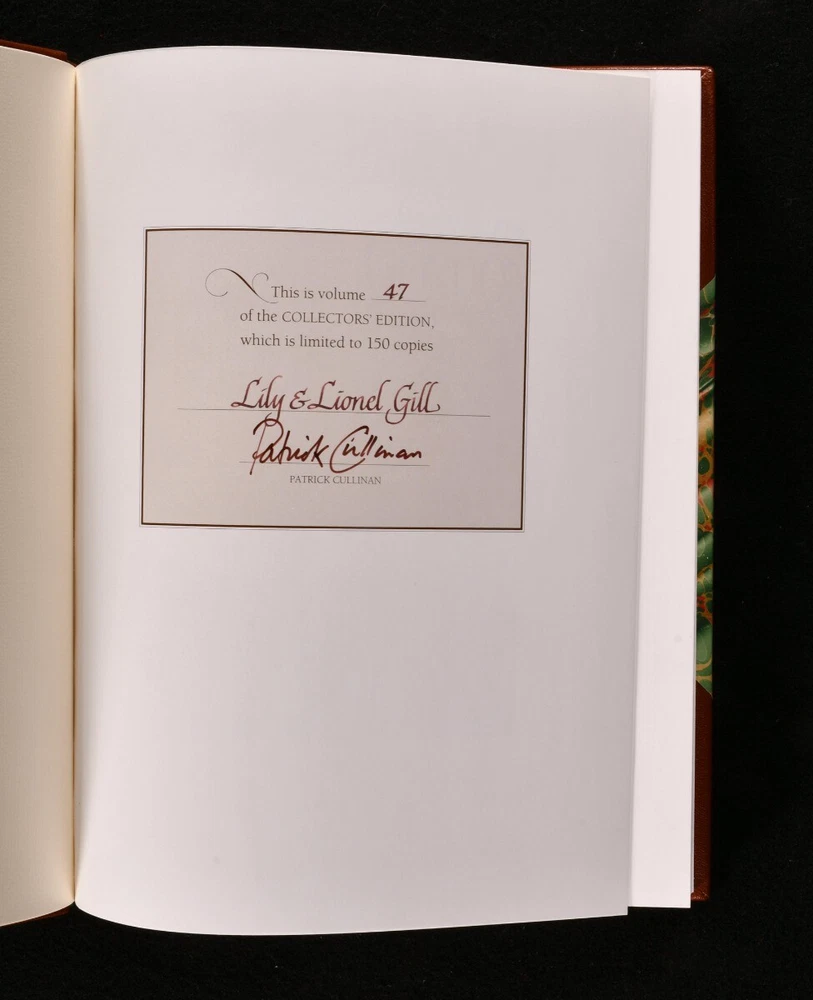 This is volume 47
of the COLLECTORS' EDITION,
which is limited to 150 copies
Lily & Lionel Gill
Patrick Cullinan
PATRICK CULLINAN